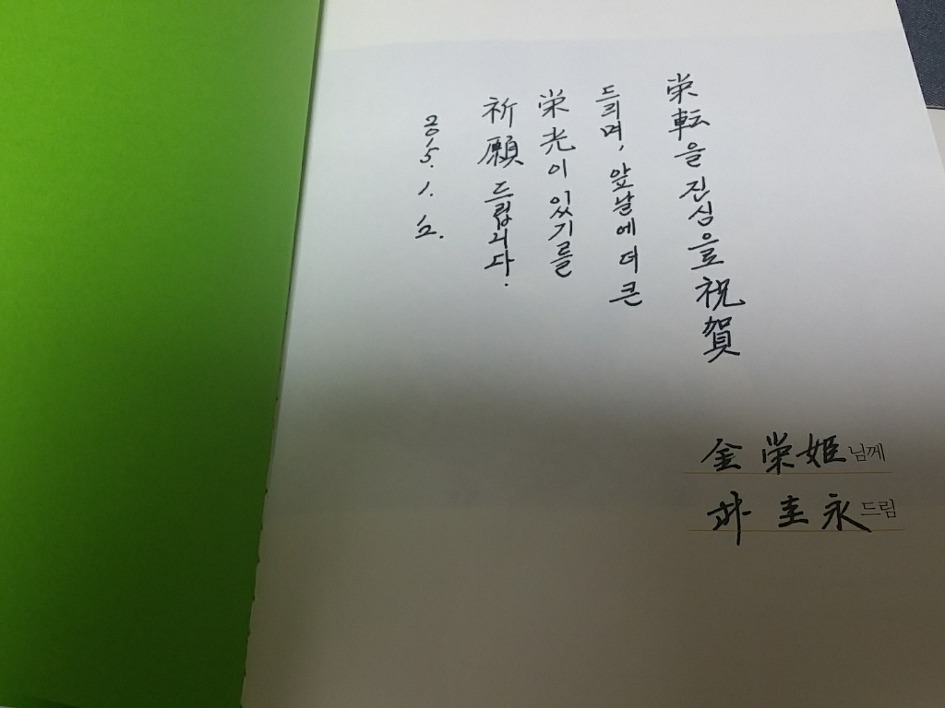 栄転을 진심으로 祝賀
드리며, 앞날에 더 큰
栄光이 있기를
祈願 드립니다.
2015. 1.
金 栄姬 님께
圭 永 드림